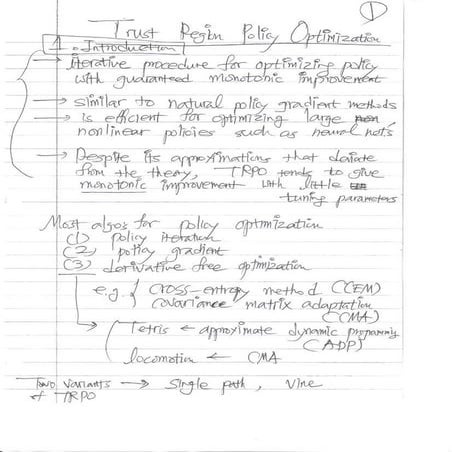 1
Trust Region Policy Optimization
1. Introduction
→ iterative procedure for optimizing policy
with guaranteed monotonic improvement
→ similar to natural policy gradient methods
→ is efficient for optimizing large
nonlinear policies such as neural nets
→ Despite its approximations that deviate
from the theory, TRPO tends to give
monotonic improvement with little
tuning parameters
Most algos for policy optimization
(1) policy iteration
(2) policy gradient
(3) derivative free optimization
e.g. { cross-entropy method (CEM)
covariance matrix adaptation
(CMA)
Tetris ← approximate dynamic programming
(ADP)
locomotion ← CMA
Two variants → single path, vine
of TRPO